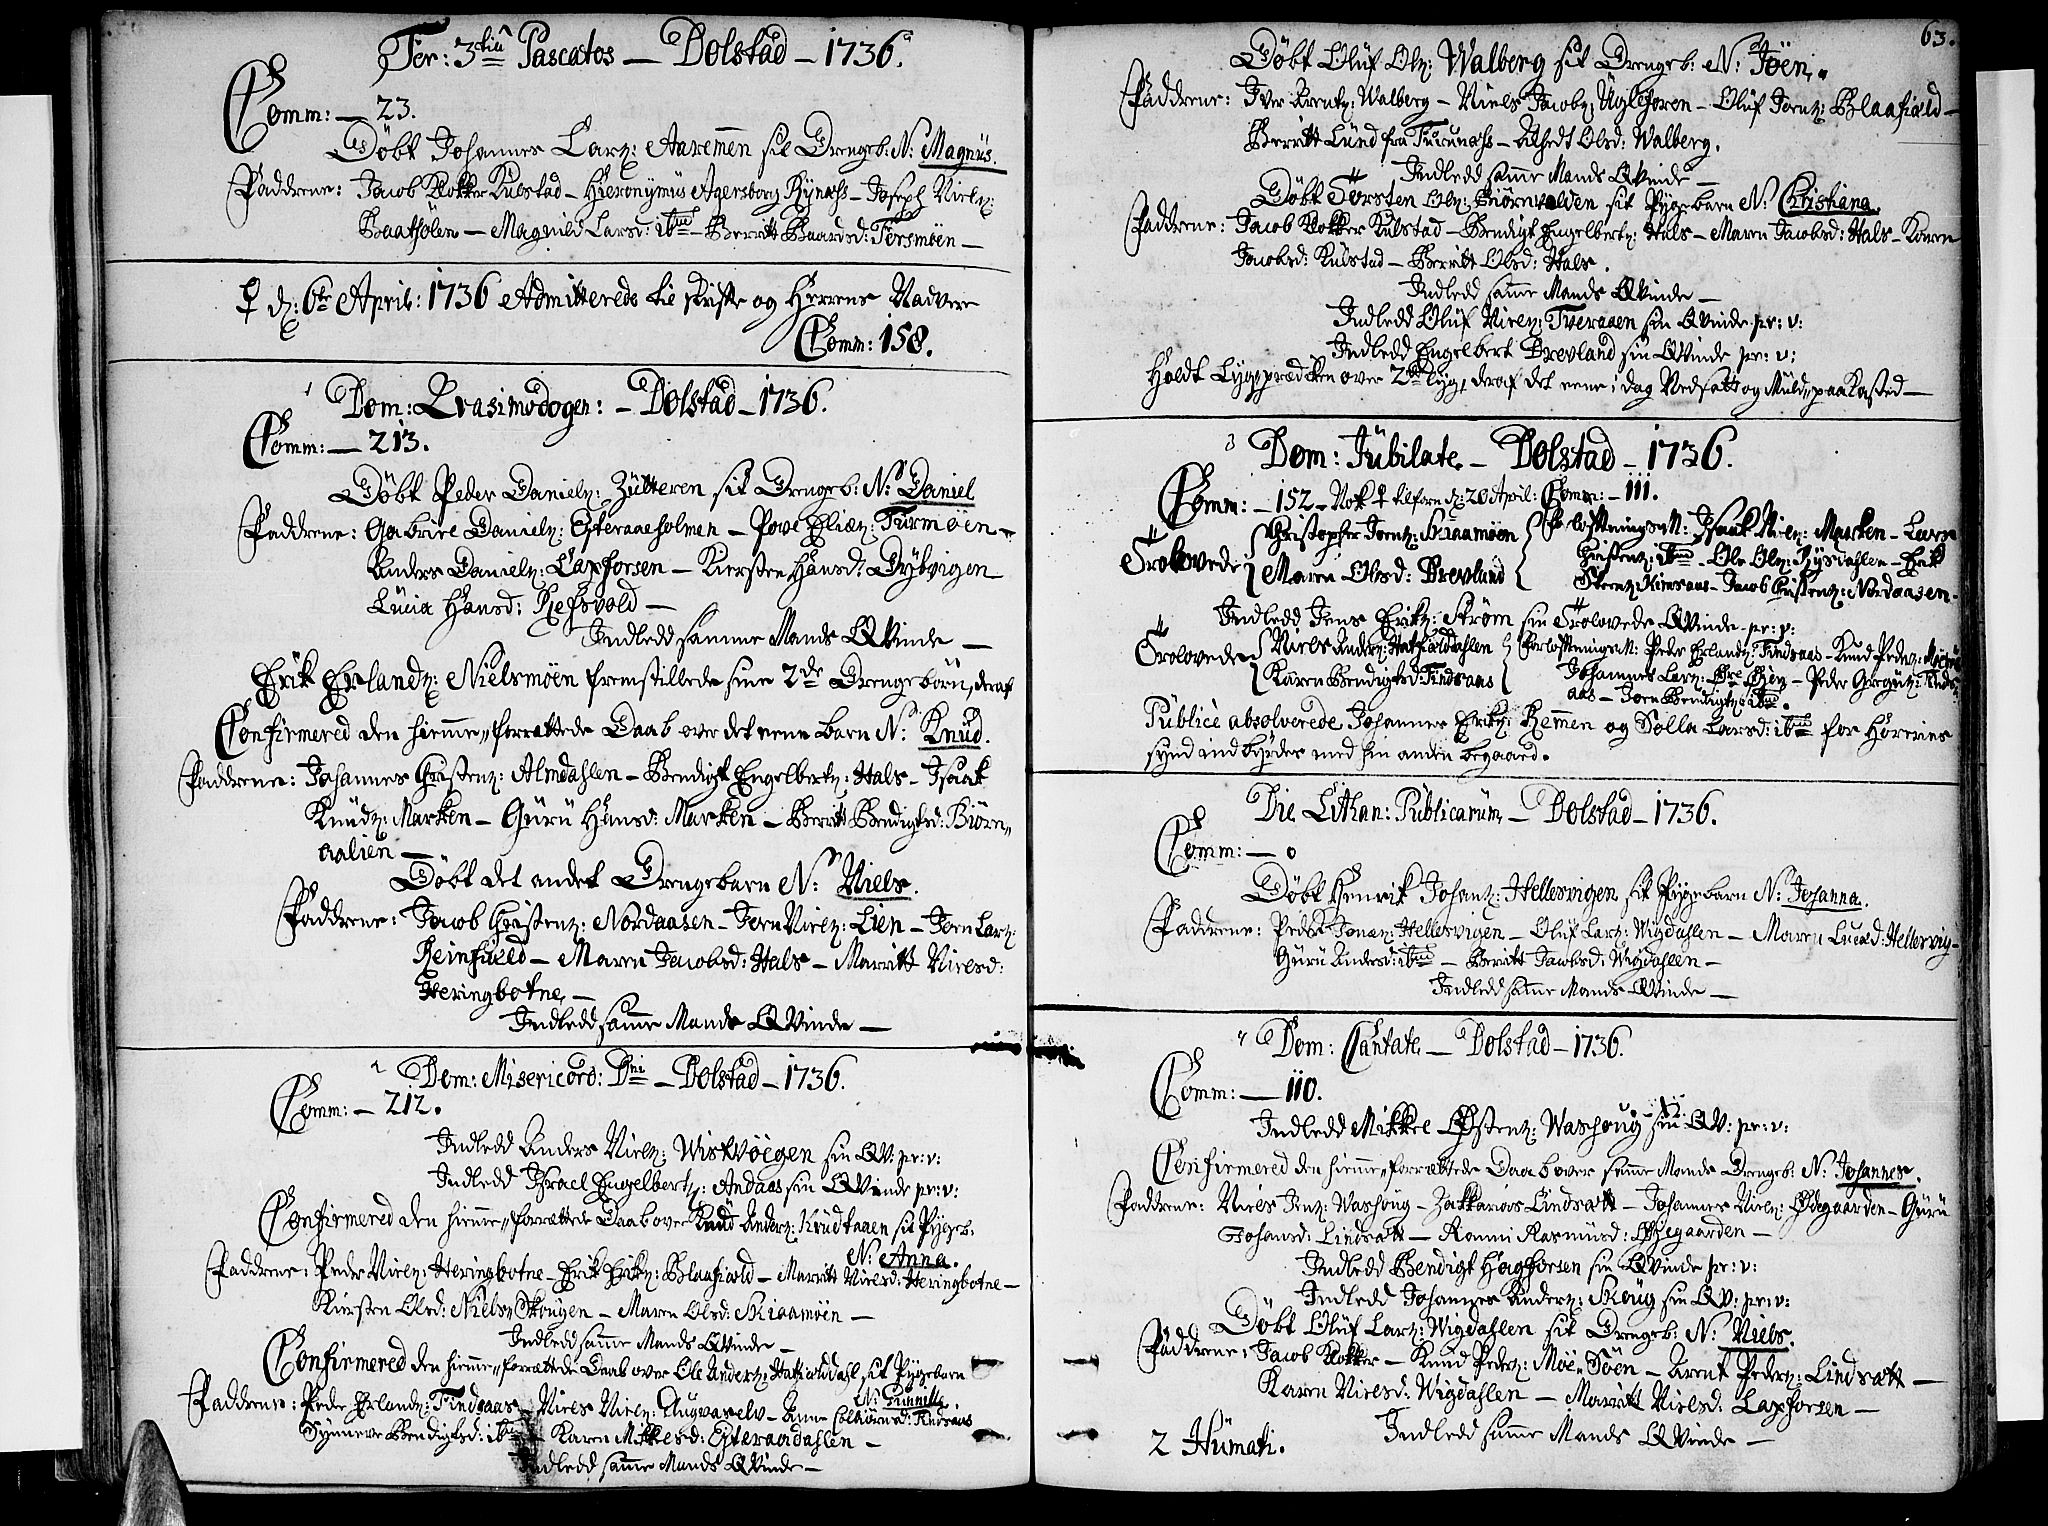 Fer: 3tiâ Pascatos — Dolstad – 1736.
Comm: — 23.
Döbt Johannes Larz: Aaremmen sit Drengeb: N: Magnus.
Faddrene: Jacob Klokker Kulstad – Hieronymus Agersborg Rynæss – Joseph Nielz:
Baatfolen – Magnild Larsd: ibm – Berritt Baardsd: Forsmöen –
♀ d: 6te April: 1736 Admitterede til skrifte og Herrens Nadvere
Comm: 158.
1 Dom: Qvasimodogen: – Dolstad – 1736.
Comm: — 213.
Döbt Peder Danielz: Zulteren sit Drengeb: N: Daniel
Faddrene: Gabriel Danielz: Efteraaeholmen – Pove Eliæz: Turmoen –
Anders Danielz: Laxforsen – Kiersten Hansd: Dybvigen
Lucia Hansd:
Indledd samme Mands Qvinde —
Erik Erlandz: Nielsmöen fremstillede sine 2de Drengebörn, deraf
Confirmered den hiemme forrættede Daab over det eene barn N: Knud.
Faddrene: Johannes Christenz: Almdahlen – Bendigt Engelbertz: Hals – Isaak
Knudz: Marken – Guru Hansd: Marken – Berritt Bendigtsd: Biörn
aalien —
Döbt det andet Drengebarn N: Niels.
Faddrene: Jacob Christenz: Nordaasen – Joen Nielz: Lien – Joen Larz:
Reinfield – Maren Jacobsd: Hals – Marritt Nielsd:
Heringbotne, —
Indledd samme Mands Qvinde —
2 Dom: Misericord: Dni – Dolstad – 1736.
Comm: — 212.
Indledd Anders Nielz: sin QV: pr: v:
Indledd Israel Engelbertz: Andaas sin QVinde pr: v:
Confirmered den hiemme forrættede Daab over Knud Anderz: Krudtaaen sit Pygeb:
N: Anna.
Faddrene: Peder Nielz: Heringbotne – Erik Erikz: Blaafiæld – Marritt Nielsd: Heringbotne –
Kiersten Olsd: Niels Skougen – Maren Olsd: Skiaamöen –
Indledd samme Mands QVinde —
Confirmered den hiemme forrættede Daab over Ole Anderz: Hatfiælddahl sit Pygebarn
N: Gunnille.
Faddrene: Peder Erlandz: Findsaas – Niels Nielz: Ungvaselv – Anne Colbiörnsd: Findsaas
Synnerve Bendigtsd: ibm – Karen Mikkelsd: Efteraardahlen –
Indledd samme Mands QVinde —
63.
Döbt Oluf Olz: Walberg sit Drengeb: N: Jöen.
Faddrene: Iver Arentz: Walberg – Niels Jacobz: Ugleforen – Oluf Joenz: Blaafiæld –
Berritt Lund fra Furunæss – Olsd: Walberg.
Indledd samme Mands QVinde —
Döbt Torsten Olz: Biörnvolden sit Pygebarn N: Christiana.
Faddrene: Jacob Klokker Kulstad – Bendigt Engelbertz: Hals – Maren Jacobsd: Hals – Karen
Jacobsd: Kulstad – Berritt Olsd: Hals.
Indledd samme Mands QVinde —
Indledd Oluf Nielz: Tveraaen sin QVinde pr: v:
Indledd Engelbert Brevland sin QVinde pr: v:
Holdt Lygprædiken over 2de lyg, deraf det eene i dag Nedsatt og Muld paakasted —
3 Dom: Jubilate – Dolstad – 1736.
Comm: — 152 – Nok ♀ tilforn d: 20 April: Comm: – 111.
Trolovede Christopher Joenz: Skiaamöen Forlofteningsm: Isaak Nielz: Marken – Lars
Maren Olsd: Brevland Christenz: ibm – Ole Olz: Rysdahlen – Erik
Kimsaas – Jacob Christenz: Nordaasen –
Indledd Jens Erikz: Ström sin Trolovede QVinde pr: v:
Trolovede Niels Anderz: Hatfiælddahlen Forlofteningsm: Peder Erlandz: Findsaas – Knud Pederz:
Karen Bendigtsd: Findsaas Johannes Larz: – Peder Gregusz: Finds
aas – Joen Bendigtz: ibm.
Publicè absolverede Johannes Erikz: Remmen og Solla Larsd: ibm for Horeries
synd indbyrdes med hin anden begaaed.
Die Lithan: Publicarum, – Dolstad – 1736.
Comm: — 0
Döbt Henrik Johanz: Hellesvigen sit Pygebarn N: Johanna.
Faddrene: Peder Jonaz: Hellesvigen – Oluf Larz: Wigdahlen – Maren Lucasd: Hellesvig –
Guru Andersd: ibm – Berritt Jacobsd: Wigdahlen –
Indledd samme Mands QVinde —
4 Dom: Cantate – Dolstad – 1736.
Comm: — 110.
Indledd Mikkel Östenz: Washoug sin QV: pr: v:
Confirmered den hiemme forrættede Daab over samme Mands Drengeb: N: Johannes.
Faddrene: Niels Jenz: Washoug – Zakkarias Lindsætt – Johannes Nielz: Ödegaarden – Guru
Johansd: Lindsætt – Ronni Rasmusd: Ödegaarden –
Indledd Bendigt Hagforsen sin QVinde pr: v:
Indledd Johannes Anderz: Skoug sin QV: pr: v:
Döbt Oluf Larz: Wigdahlen sit Drengeb: N: Niels.
Faddrene: Jacob Klokker – Knud Pederz: – Arent Pederz: Lindsætt —
Karen Nielsd: Wigdahlen – Marritt Nielsd: Laxforsen –
Indledd samme Mands QVinde —
2 Humati.